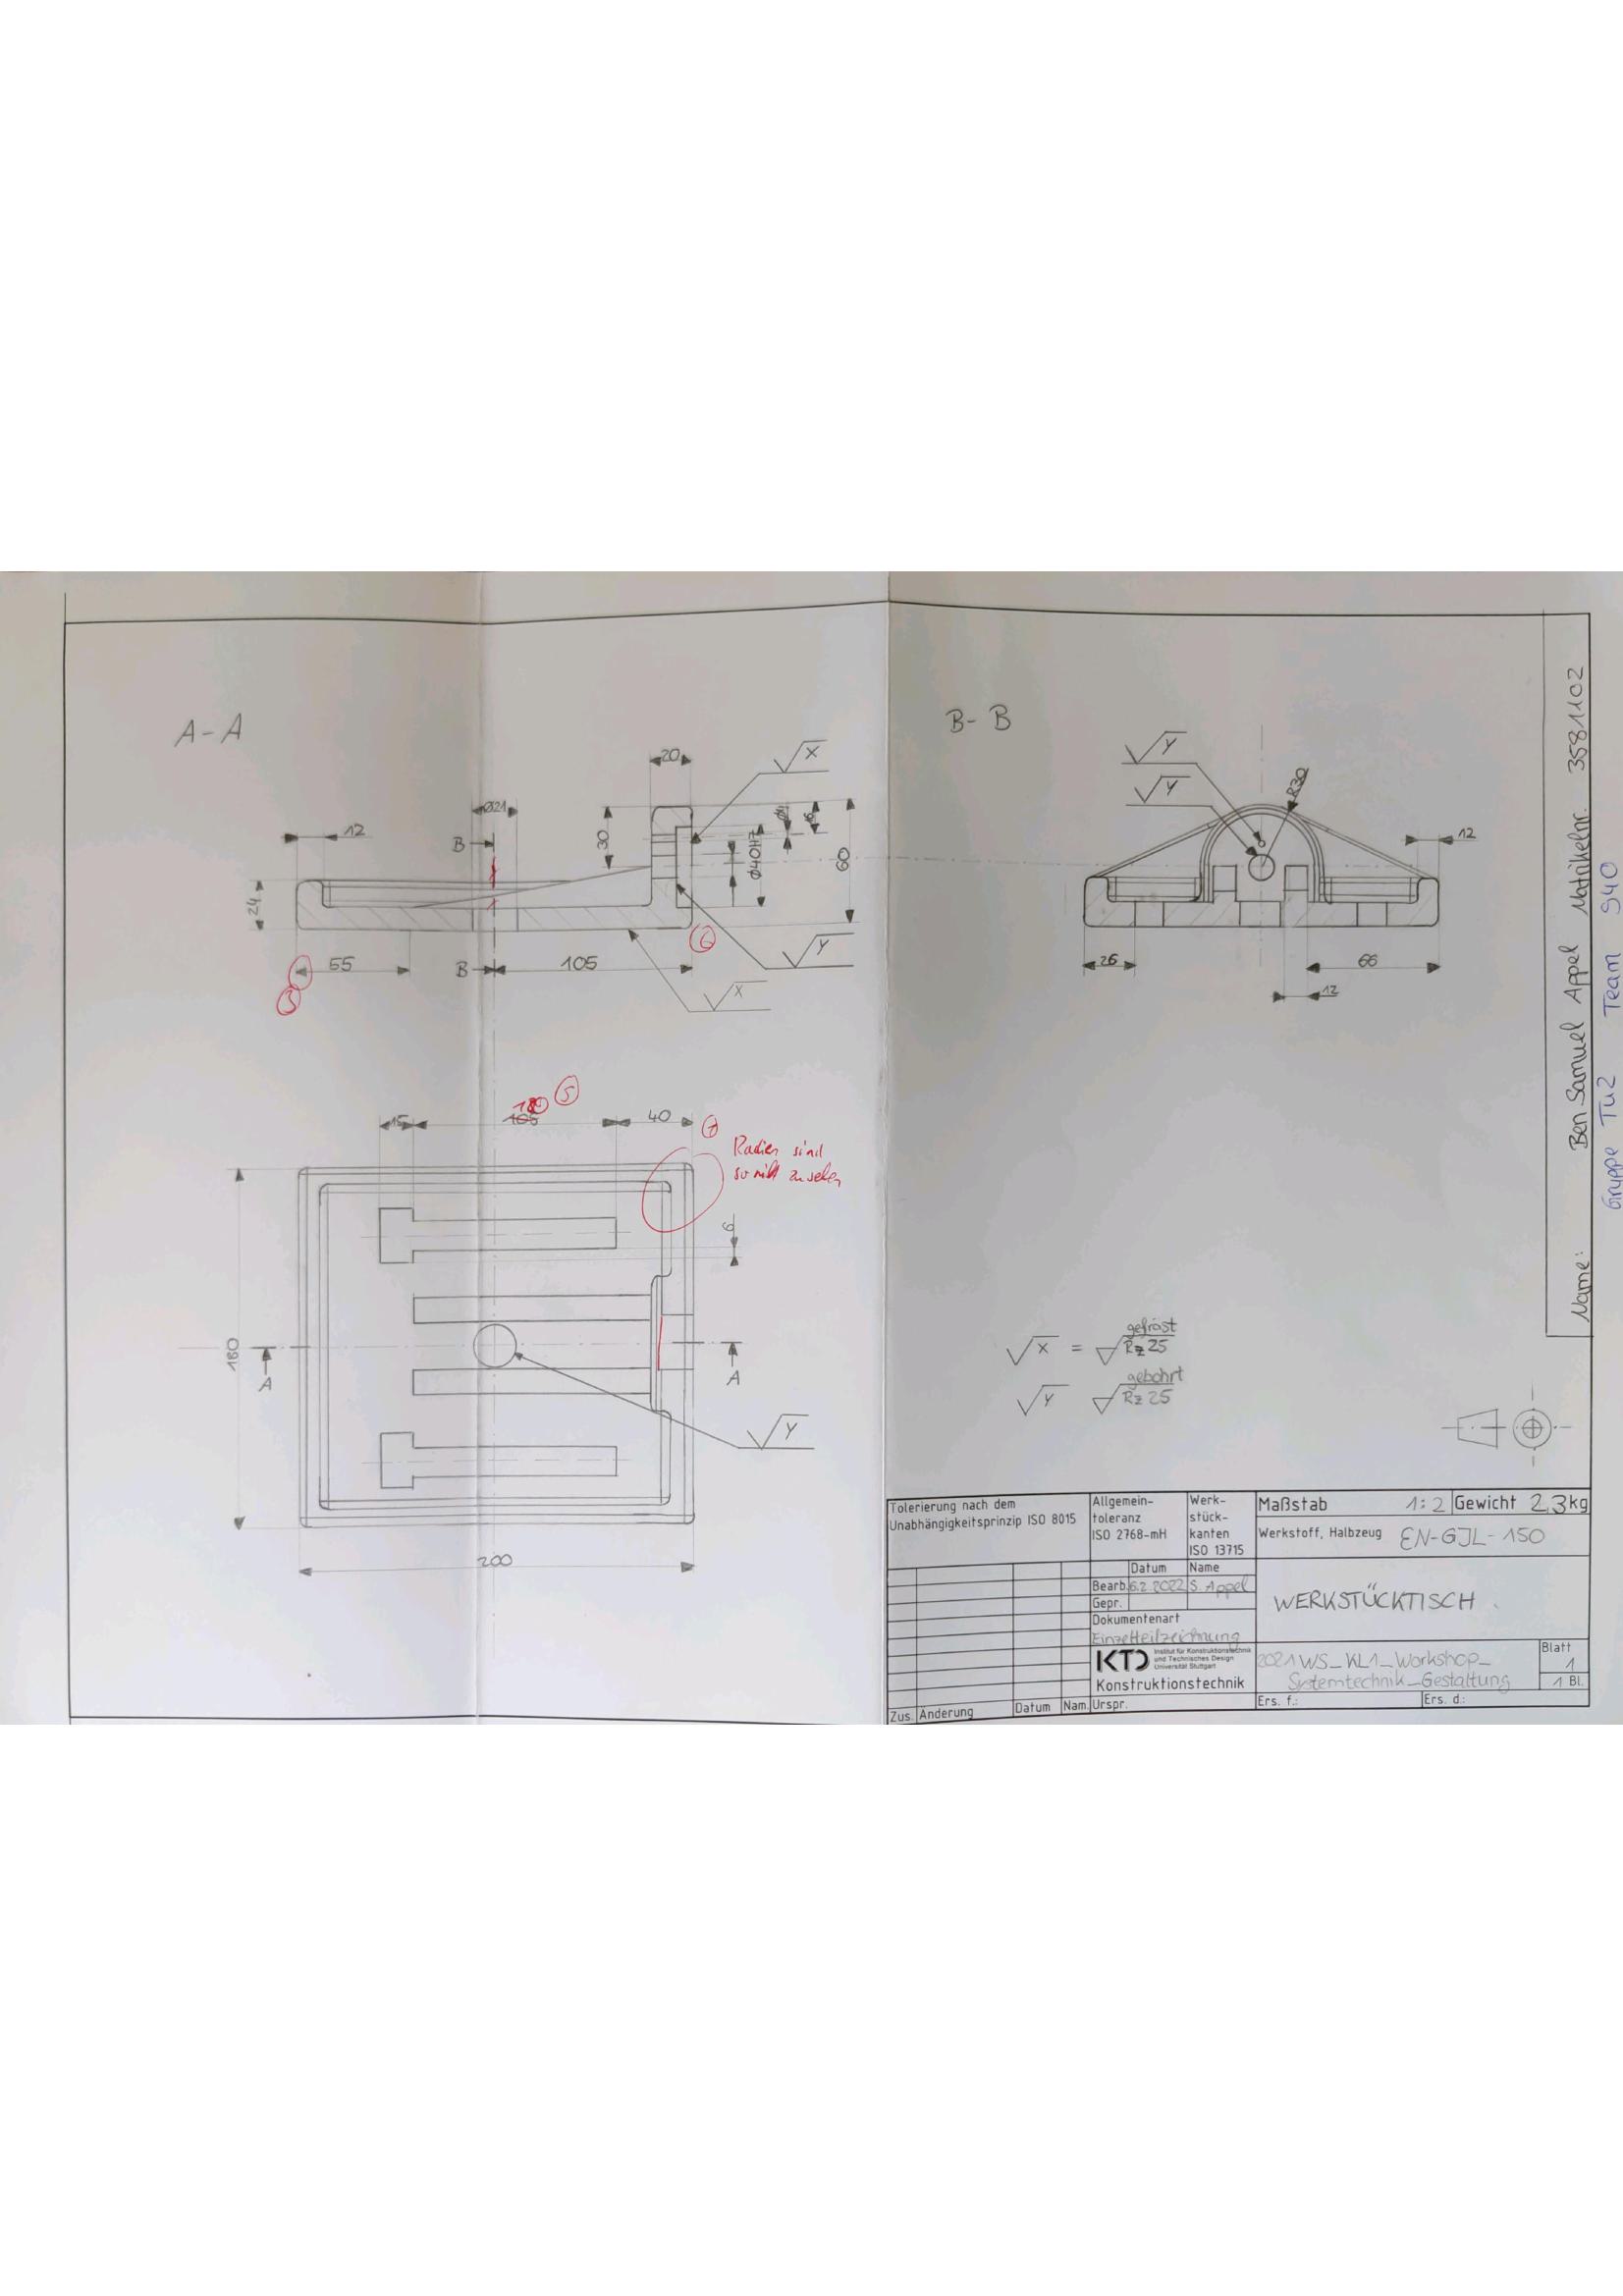 A-A
20
√X
Ø21
12
B
30
Ø40H7
60
24
6
55
B
105
√Y
√X
B-B
√Y
√Y
R30
12
26
66
12
5
180
105
15
40
7
Radien sind
so nicht zu sehen
6
180
A
A
√Y
200
√X = √ gefräst Rz 25
√Y √ gebohrt Rz 25
Name: Ben Samuel Appel Matrikelnr. 3581102
Gruppe Tu2 Team S40
Tolerierung nach dem
Unabhängigkeitsprinzip ISO 8015
Allgemein-
toleranz
ISO 2768-mH
Werk-
stück-
kanten
ISO 13715
Maßstab 1:2
Gewicht 2,3kg
Werkstoff, Halbzeug EN-GJL-150
Datum Name
Bearb. 6.2.2022 S. Appel
Gepr.
Dokumentenart
Einzelteilzeichnung
WERKSTÜCKTISCH
KTD Institut für Konstruktionstechnik
und Technisches Design
Universität Stuttgart
Konstruktionstechnik
2021WS_KL1_Workshop_
Systemtechnik_Gestaltung
Blatt
1
1 Bl.
Zus. Änderung Datum Nam. Urspr. Ers. f.: Ers. d.: